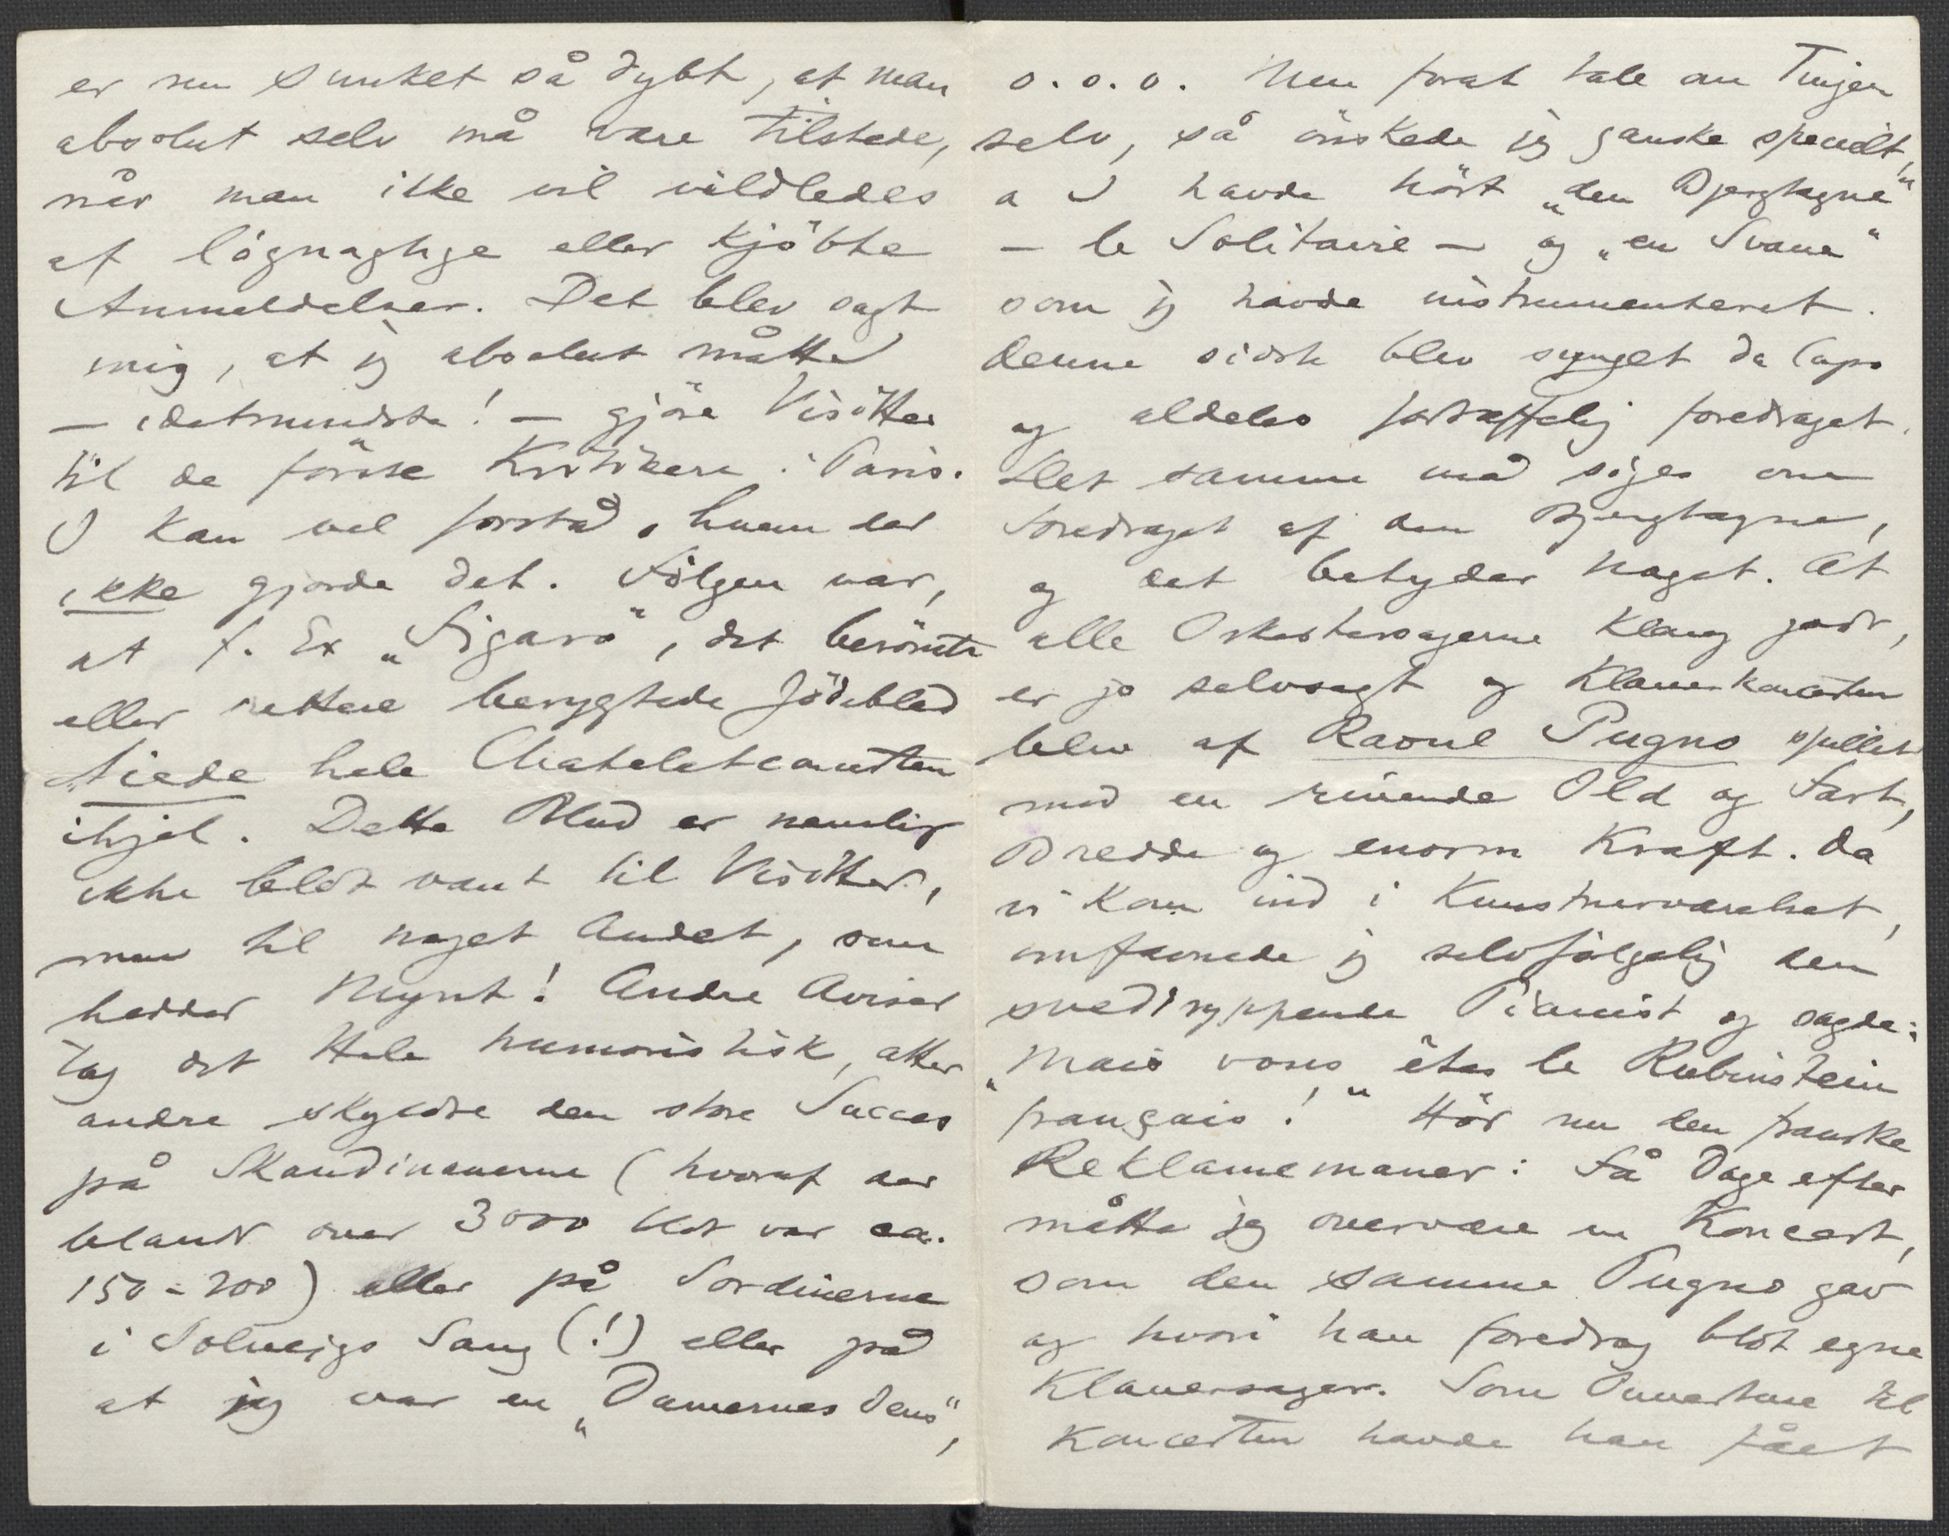 er nu sunket så dybt, at man
absolut selv må være tilstede,
når man ikke vil vildledes
af lögnagtige eller kjöbte
Anmeldelser. Det blev sagt
mig, at jeg absolut måtte
– idetmindste! – gjöre Visitter
til de förste Kritikere i Paris.
I kan vel forstå, hvem der
ikke gjorde det. Fölgen var,
at f. Ex „Figaro", det berömte
eller rettere berygtede Jödeblad
tiede hele Chateletconcerten
ihjel. Dette Blad er nemlig
ikke blot vant til Visitter,
men til noget Andet, som
hedder Mynt! Andre Aviser
tog det Hele humoristisk, atter
andre skyldte den store Succes
på Skandinaverne (hvoraf der
blandt over 3000 blot var ca.
150-200) eller på Sordinerne
i Solvejgs Sang (!) eller på
at jeg var en „Damernes Jens",
o.s.v. Men forat tale om Tingen
selv, så önskede jeg ganske specielt,
a I havde hört „den Bjergtagne"
– le Solitaire – og „en Svane"
som jeg havde instrumenteret.
Denne sidste blev synget da Capo
og aldeles fortræffelig foredraget.
Det samme må siges om
Foredraget af den Bjergtagne,
og det betyder noget. At
alle Orkestersagerne klang godt,
er jo selvsagt og Klaverkoncerten
blev af Raoul Pugno spillet
med en rivende Ild og Fart,
Bredde og enorm Kraft. Da
vi kom ind i Kunstnerværelset,
omfavnede jeg selvfölgelig den
sveddryppende Pianist og sagde:
„Mais vous êtes le Rubinstein
français!" Hör nu den franske
Reklamemaner: Få Dage efter
måtte jeg overvære en Koncert,
som den samme Pugno gav
og hvori han foredrog blot egne
Klaversager. Som Ouverture til
Koncerten havde han fået